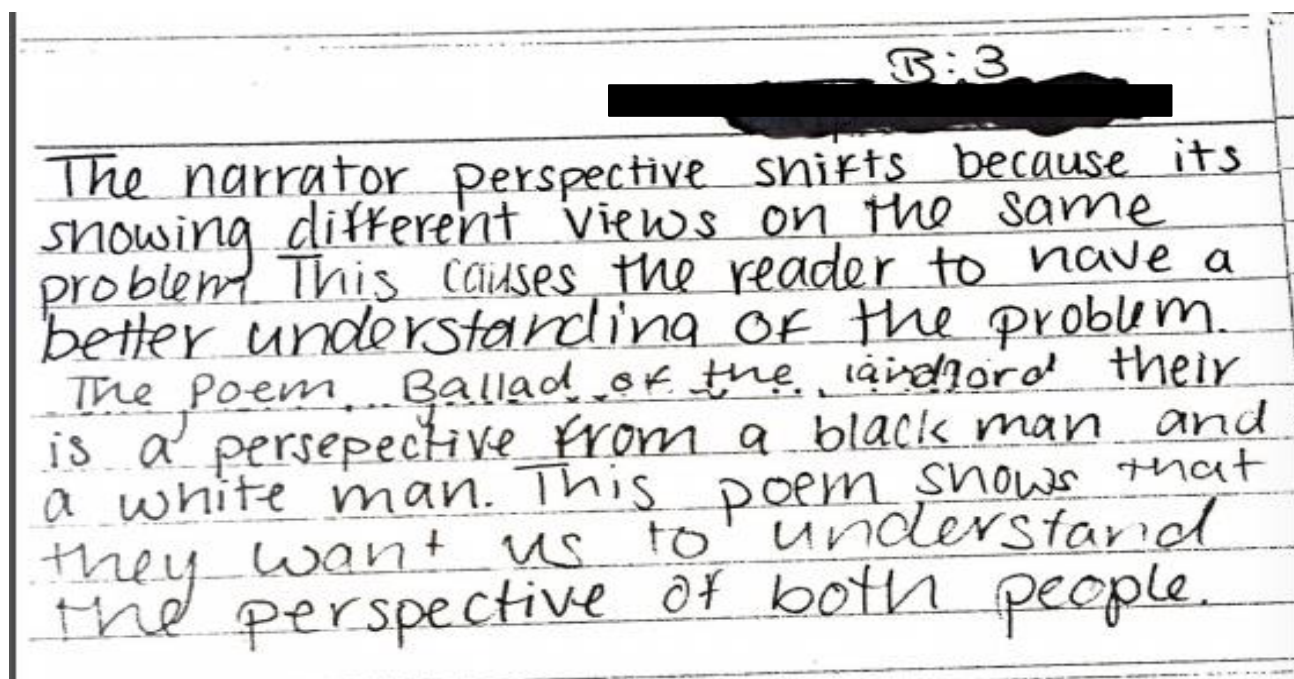 B:3
The narrator perspective shifts because its
showing different views on the same
problem. This causes the reader to have a
better understanding of the problem.
The Poem, Ballad of the landlord their
is a persepective from a black man and
a white man. This poem shows that
they want us to understand
the perspective of both people.